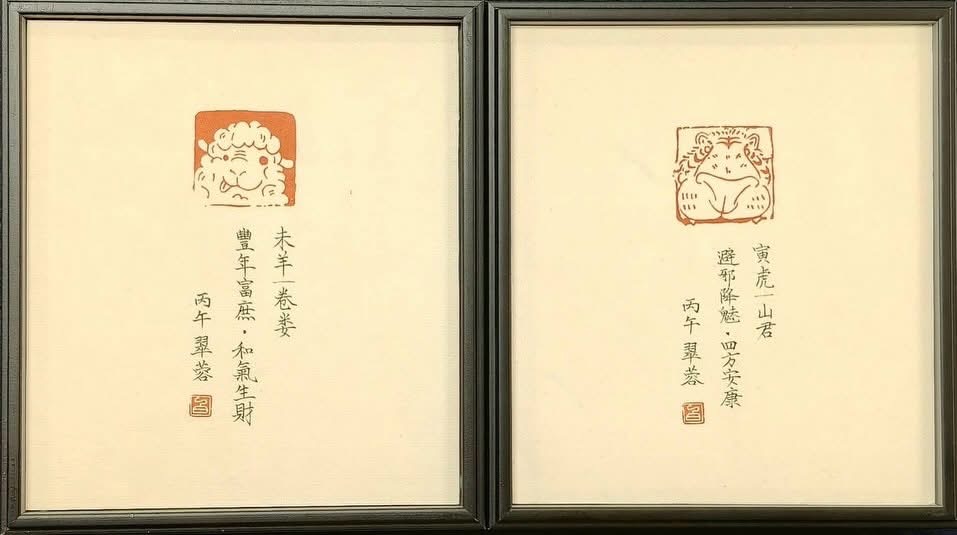 未羊｜卷婁
豐年富庶・和氣生財
丙午 翠蓉
寅虎｜山君
避邪降魅・四方安康
丙午 翠蓉